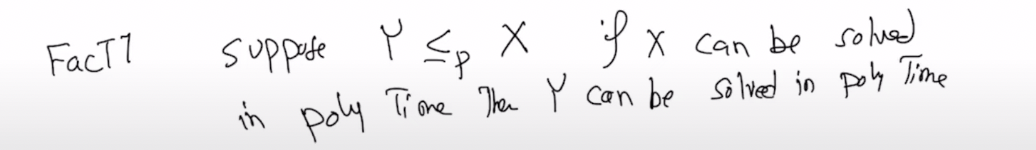 Fact 1 suppose Y ≤p X if X can be solved
in poly Time Then Y can be solved in poly Time